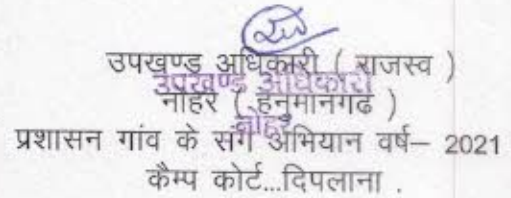 उपखण्ड अधिकारी ( राजस्व )
उपखण्ड अधिकारी
नोहर ( हनुमानगढ )
नोहर
प्रशासन गांव के संग अभियान वर्ष– 2021
कैम्प कोर्ट...दिपलाना .